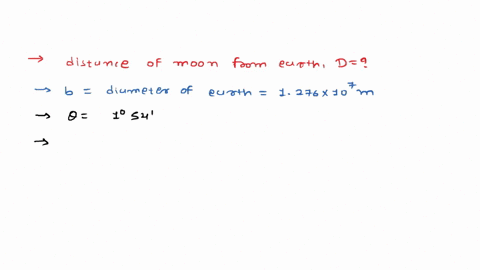 → distance of moon from earth, D = ?
→ b = diameter of earth = 1.276 × 10⁷ m
→ θ = 1° 54'
→